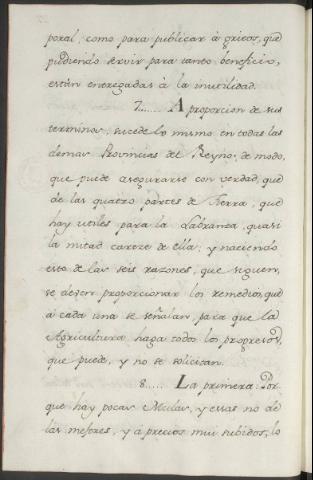 poral; como para publicar à gritos, que
pudiendo servir para tanto beneficio,
están entregadas à la inutilidad.
7...... A proporcion de sus
terminos, sucede lo mismo en todas las
demas Provincias del Reyno; de modo,
que puede asegurarse con verdad, que
de las quatro partes de tierra, que
hay utiles para la Labranza, quasi
la mitad carece de ella; y naciendo
esto de las seis razones, que siguen,
se deven proporcionar los remedios, que
à cada una se señalan, para que la
Agricultura haga todos los progresos,
que puede, y no se solicitan.
8..... La primera Por-
que hay pocas Mulas, y essas no de
las mejores, y à precios mui subidos, lo